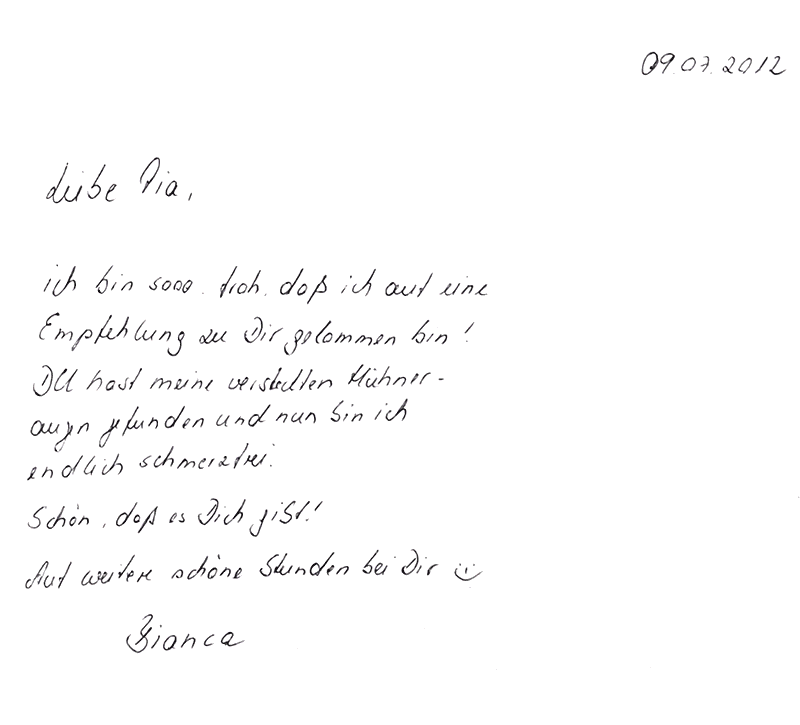 09.07.2012
Liebe Pia,
ich bin sooo froh, daß ich auf eine
Empfehlung zu Dir gekommen bin!
DU hast meine versteckten Hühner-
augen gefunden und nun bin ich
endlich schmerzfrei.
Schön, daß es Dich gibt!
Auf weitere schöne Stunden bei Dir ☺
Bianca